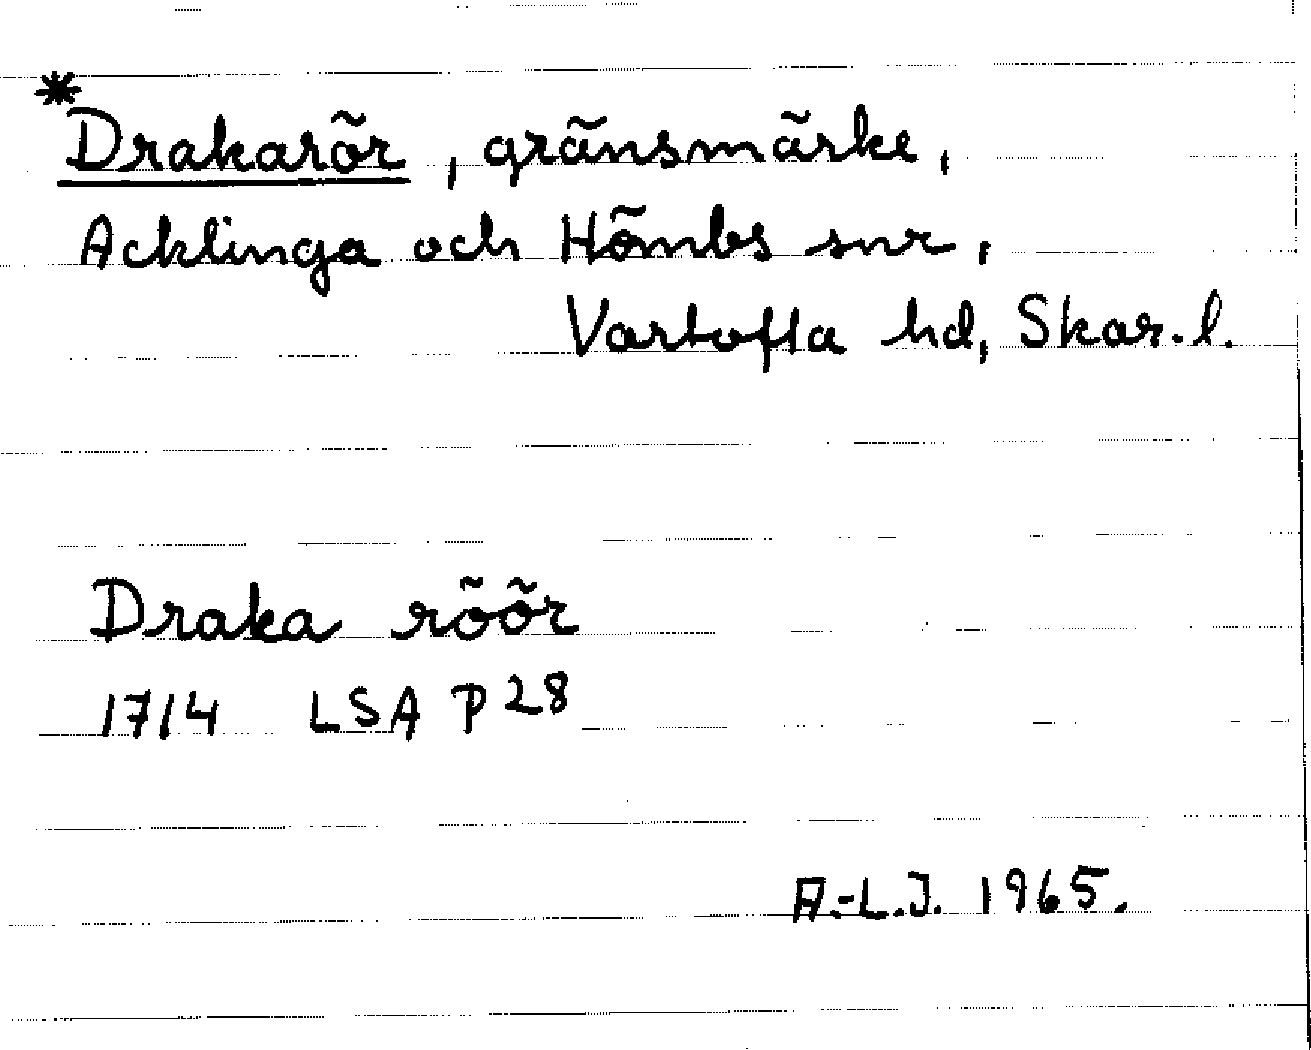 *Drakarör, gränsmärke,
Acklinga och Hömbs snr,
Vartofta hd, Skar. l.
Draka röör
1714 LSA P 28
A.-L.J. 1965.